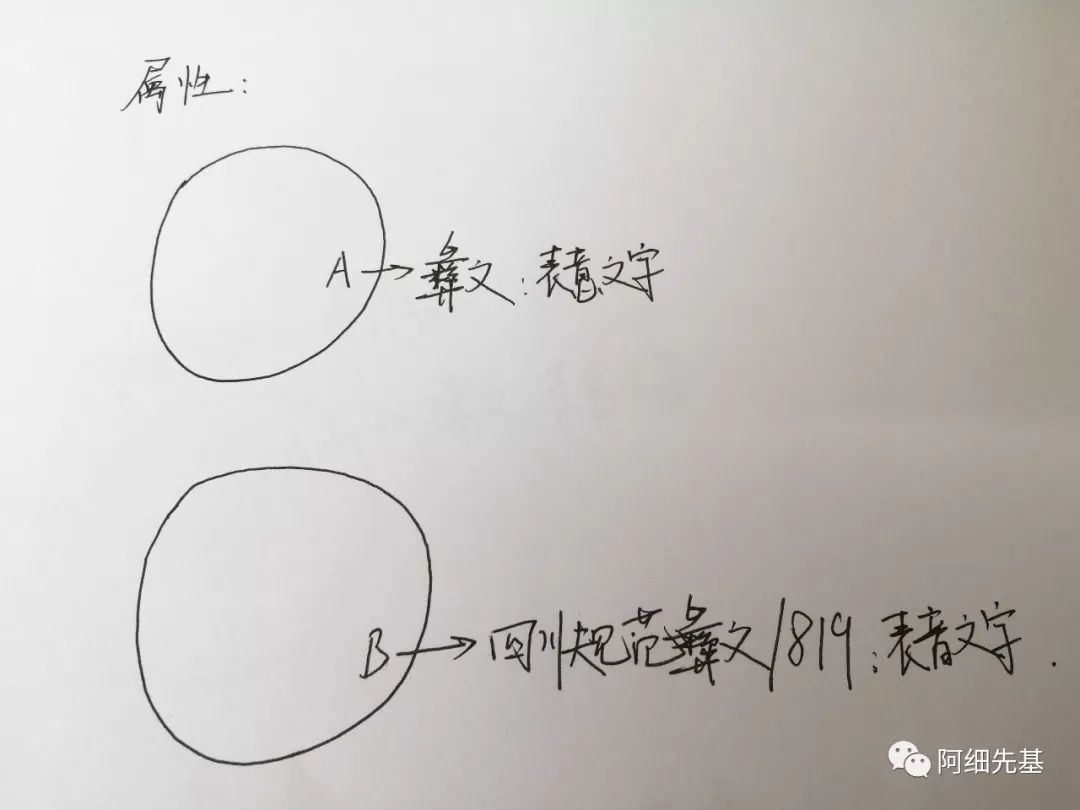 属性:
A → 彝文:表意文字
B → 四川规范彝文/819:表音文字.
阿细先基